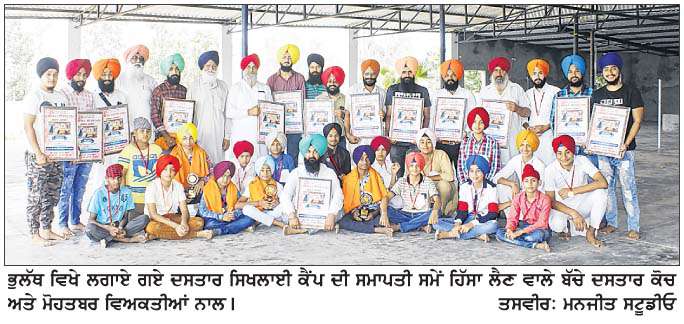 ਭੁਲੱਥ ਵਿਖੇ ਲਗਾਏ ਗਏ ਦਸਤਾਰ ਸਿਖਲਾਈ ਕੈਂਪ ਦੀ ਸਮਾਪਤੀ ਸਮੇਂ ਹਿੱਸਾ ਲੈਣ ਵਾਲੇ ਬੱਚੇ ਦਸਤਾਰ ਕੋਚ
ਅਤੇ ਮੋਹਤਬਰ ਵਿਅਕਤੀਆਂ ਨਾਲ। ਤਸਵੀਰ: ਮਨਜੀਤ ਸਟੂਡੀਓ